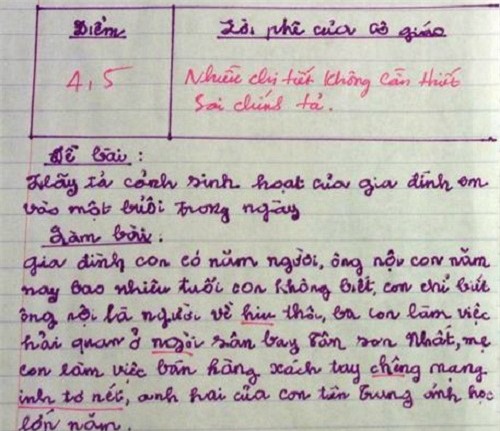 Điểm
Lời phê của cô giáo
4,5
Nhiều chi tiết không cần thiết
Sai chính tả.
Đề bài :
Hãy tả cảnh sinh hoạt của gia đình em
vào một buổi trong ngày
Làm bài :
Gia đình con có năm người, ông nội con năm
nay bao nhiêu tuổi con không biết, con chỉ biết
ông nội là người về hiu thôi, ba con làm việc
hải quan ở ngòi sân bay Tân Sơn Nhất, mẹ
con làm việc bán hàng xách tay chêng mạng
inh tơ nét, anh hai của con tên Trung ảnh học
lớn năm.